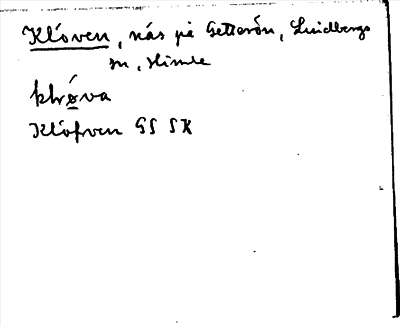 Klóven, näs på Getterön, Lindbergs
sn, Himle
klǿva
Klófven GS SK